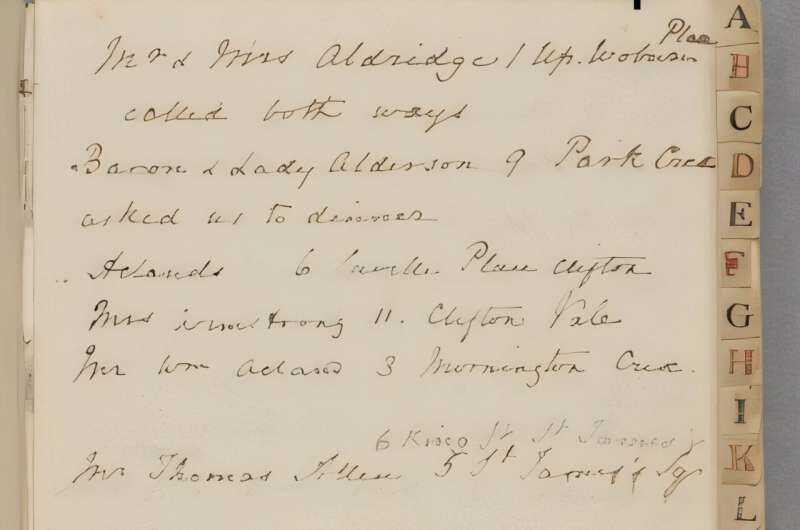 Place
Mr & Mrs Aldridge 1 Up. Woburn
called both ways
Baron & Lady Alderson 9 Park Cres
asked us to dinner
Aclands 6 Place Clifton
Mrs Armstrong 11. Clifton Vale
Mr Wm Acland 3 Mornington Cres.
6 King St St James's
Mr Thomas Allen 5 St James's Sqr
A
B
C
D
E
F
G
H
I
K
L